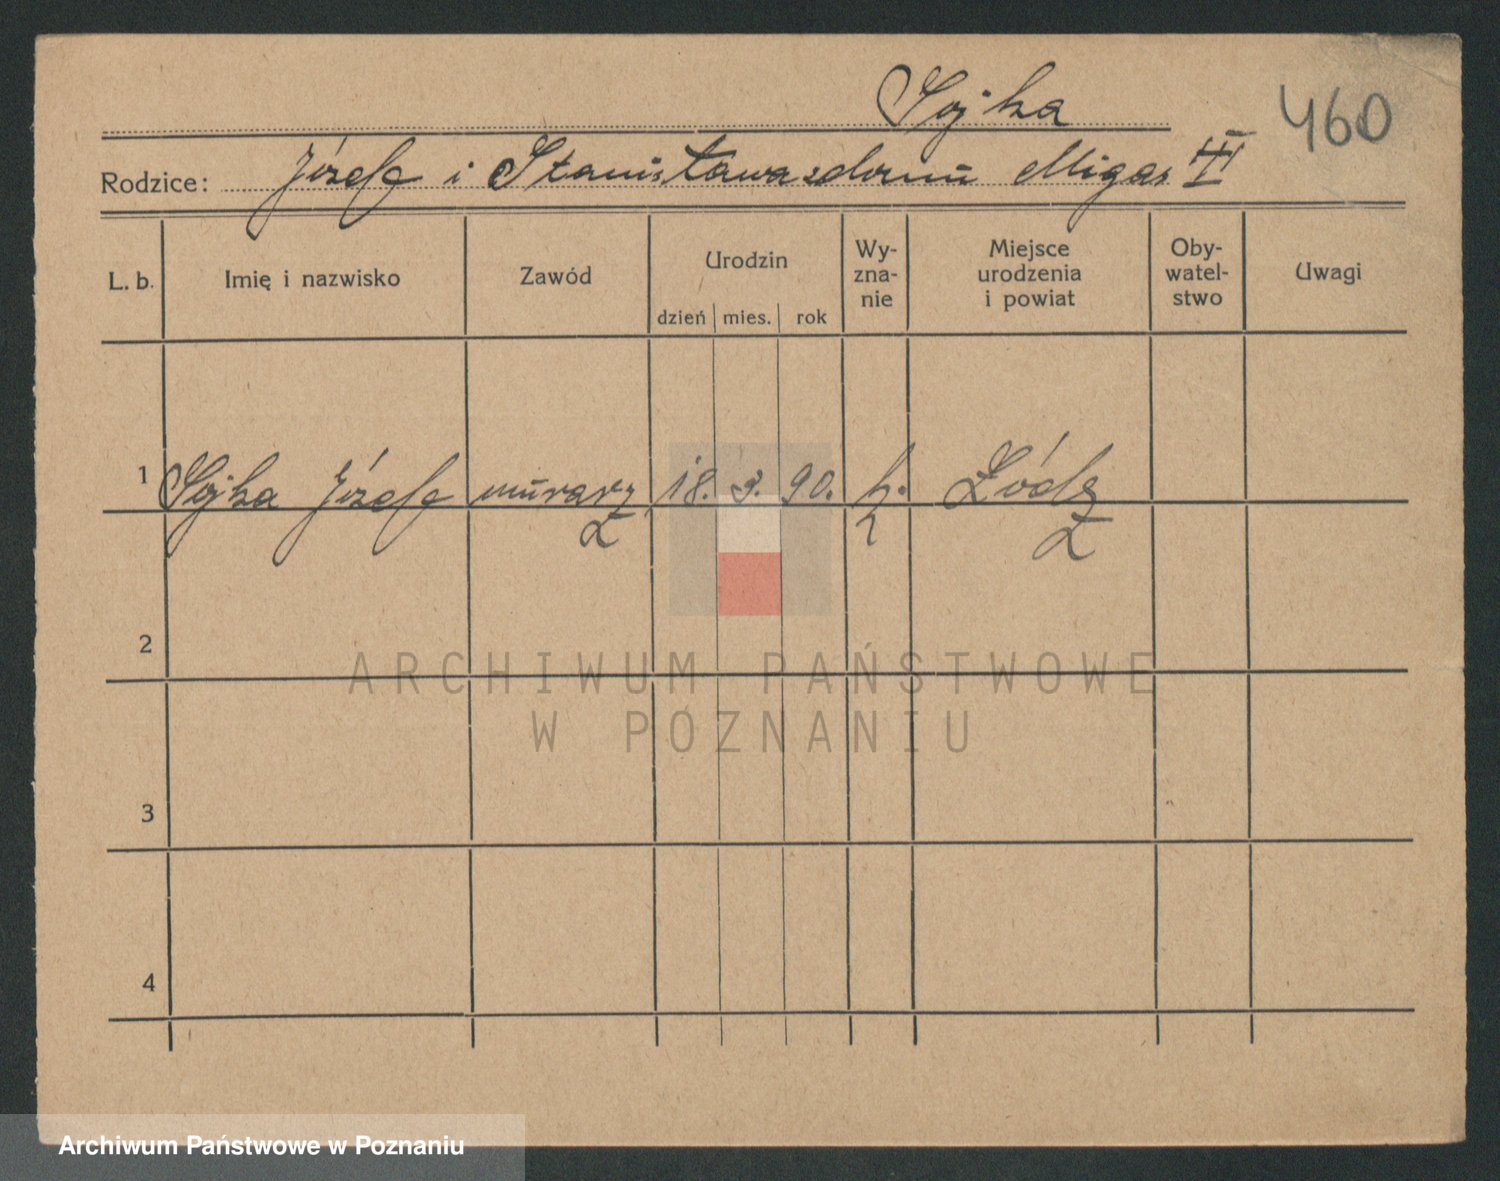 Sojka
460
Rodzice: Józef i Stanisława z domu Migas III
L. b. Imię i nazwisko Zawód Urodzin dzień mies. rok Wy-zna-nie Miejsce urodzenia i powiat Oby-watel-stwo Uwagi
1 Sojka Józef murarz 18. 3. 90. k. Łódź
2
ARCHIWUM PAŃSTWOWE
W POZNANIU
3
4
Archiwum Państwowe w Poznaniu